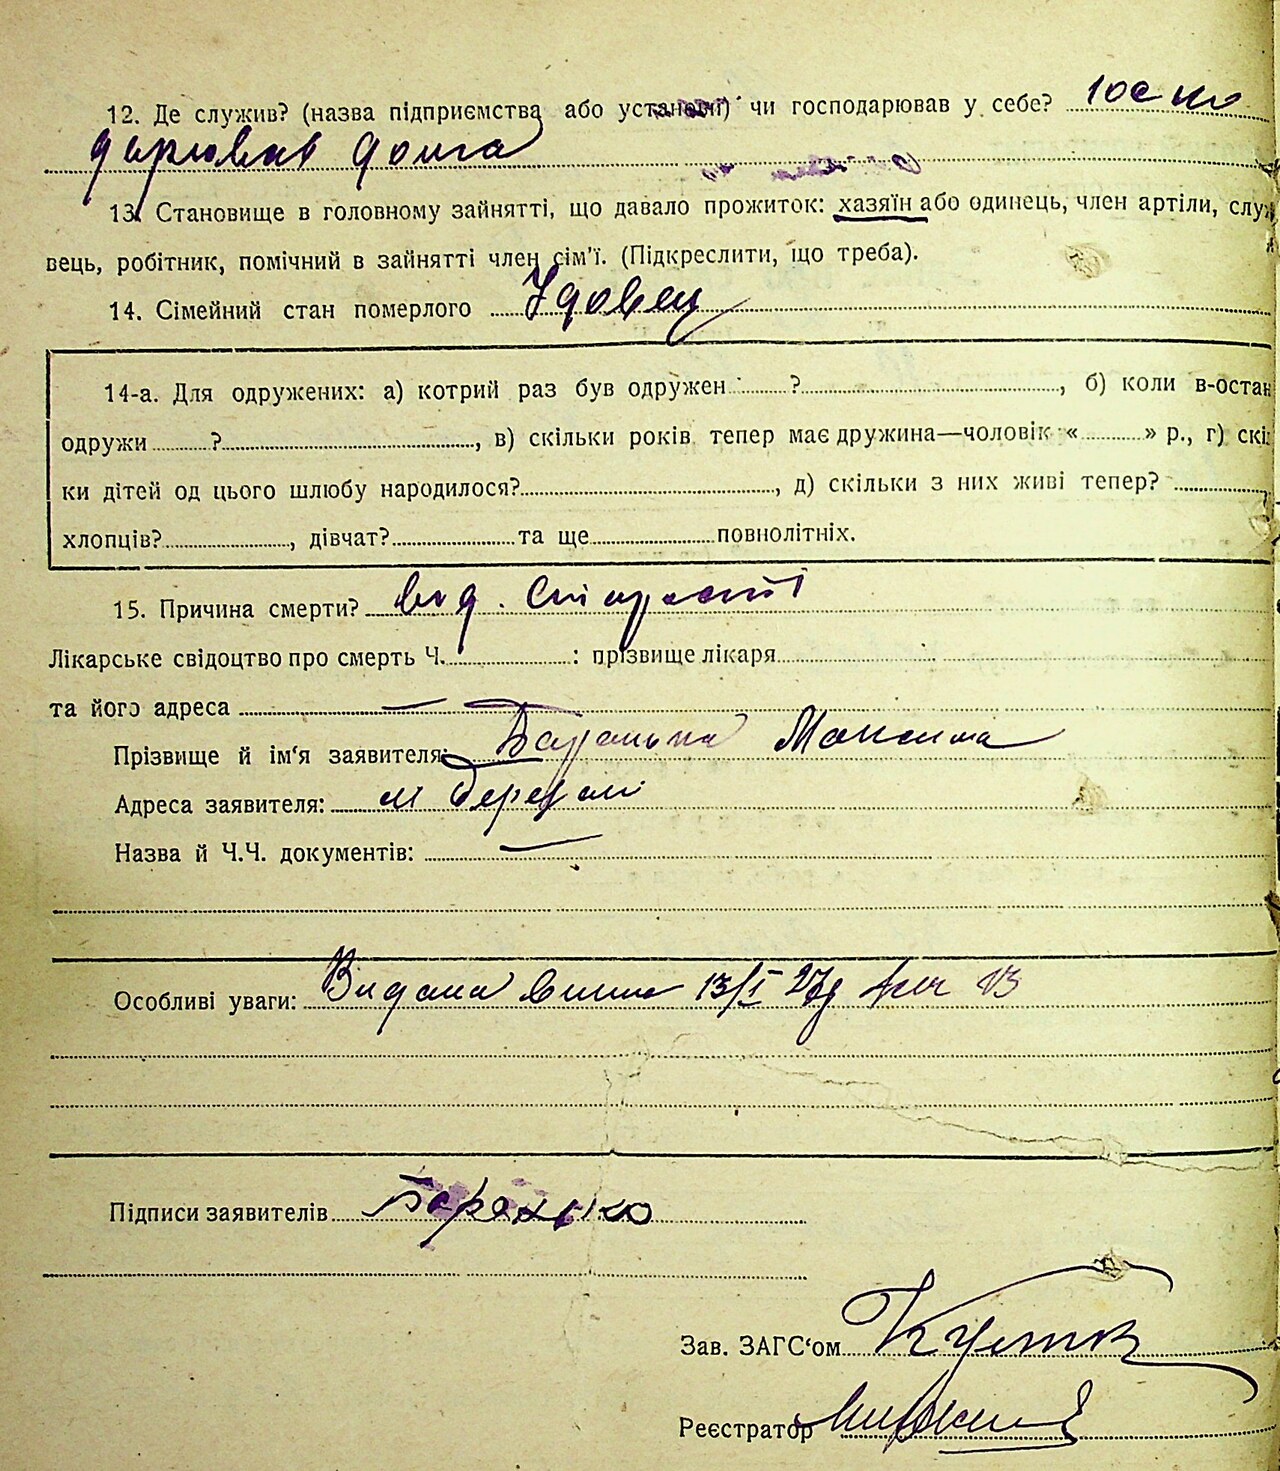 12. Де служив? (назва підприємства або установи) чи господарював у себе? госпо
дарював дома
13. Становище в головному зайнятті, що давало прожиток: хазяїн або одинець, член артіли, служ
вець, робітник, помічний в зайнятті член сім'ї. (Підкреслити, що треба).
14. Сімейний стан померлого Удовец
14-а. Для одружених: а) котрий раз був одружен ? , б) коли в-остан
одружи ? , в) скільки років тепер має дружина—чоловік « » р., г) скі
ки дітей од цього шлюбу народилося? , д) скільки з них живі тепер?
хлопців? , дівчат? та ще повнолітніх.
15. Причина смерти? від старості
Лікарське свідоцтво про смерть Ч. : прізвище лікаря
та його адреса —
Прізвище й ім'я заявителя: Максима
Адреса заявителя: м Березані
Назва й Ч.Ч. документів: —
Особливі уваги: Видана 13/I 27
Підписи заявителів
Зав. ЗАГС'ом
Реєстратор